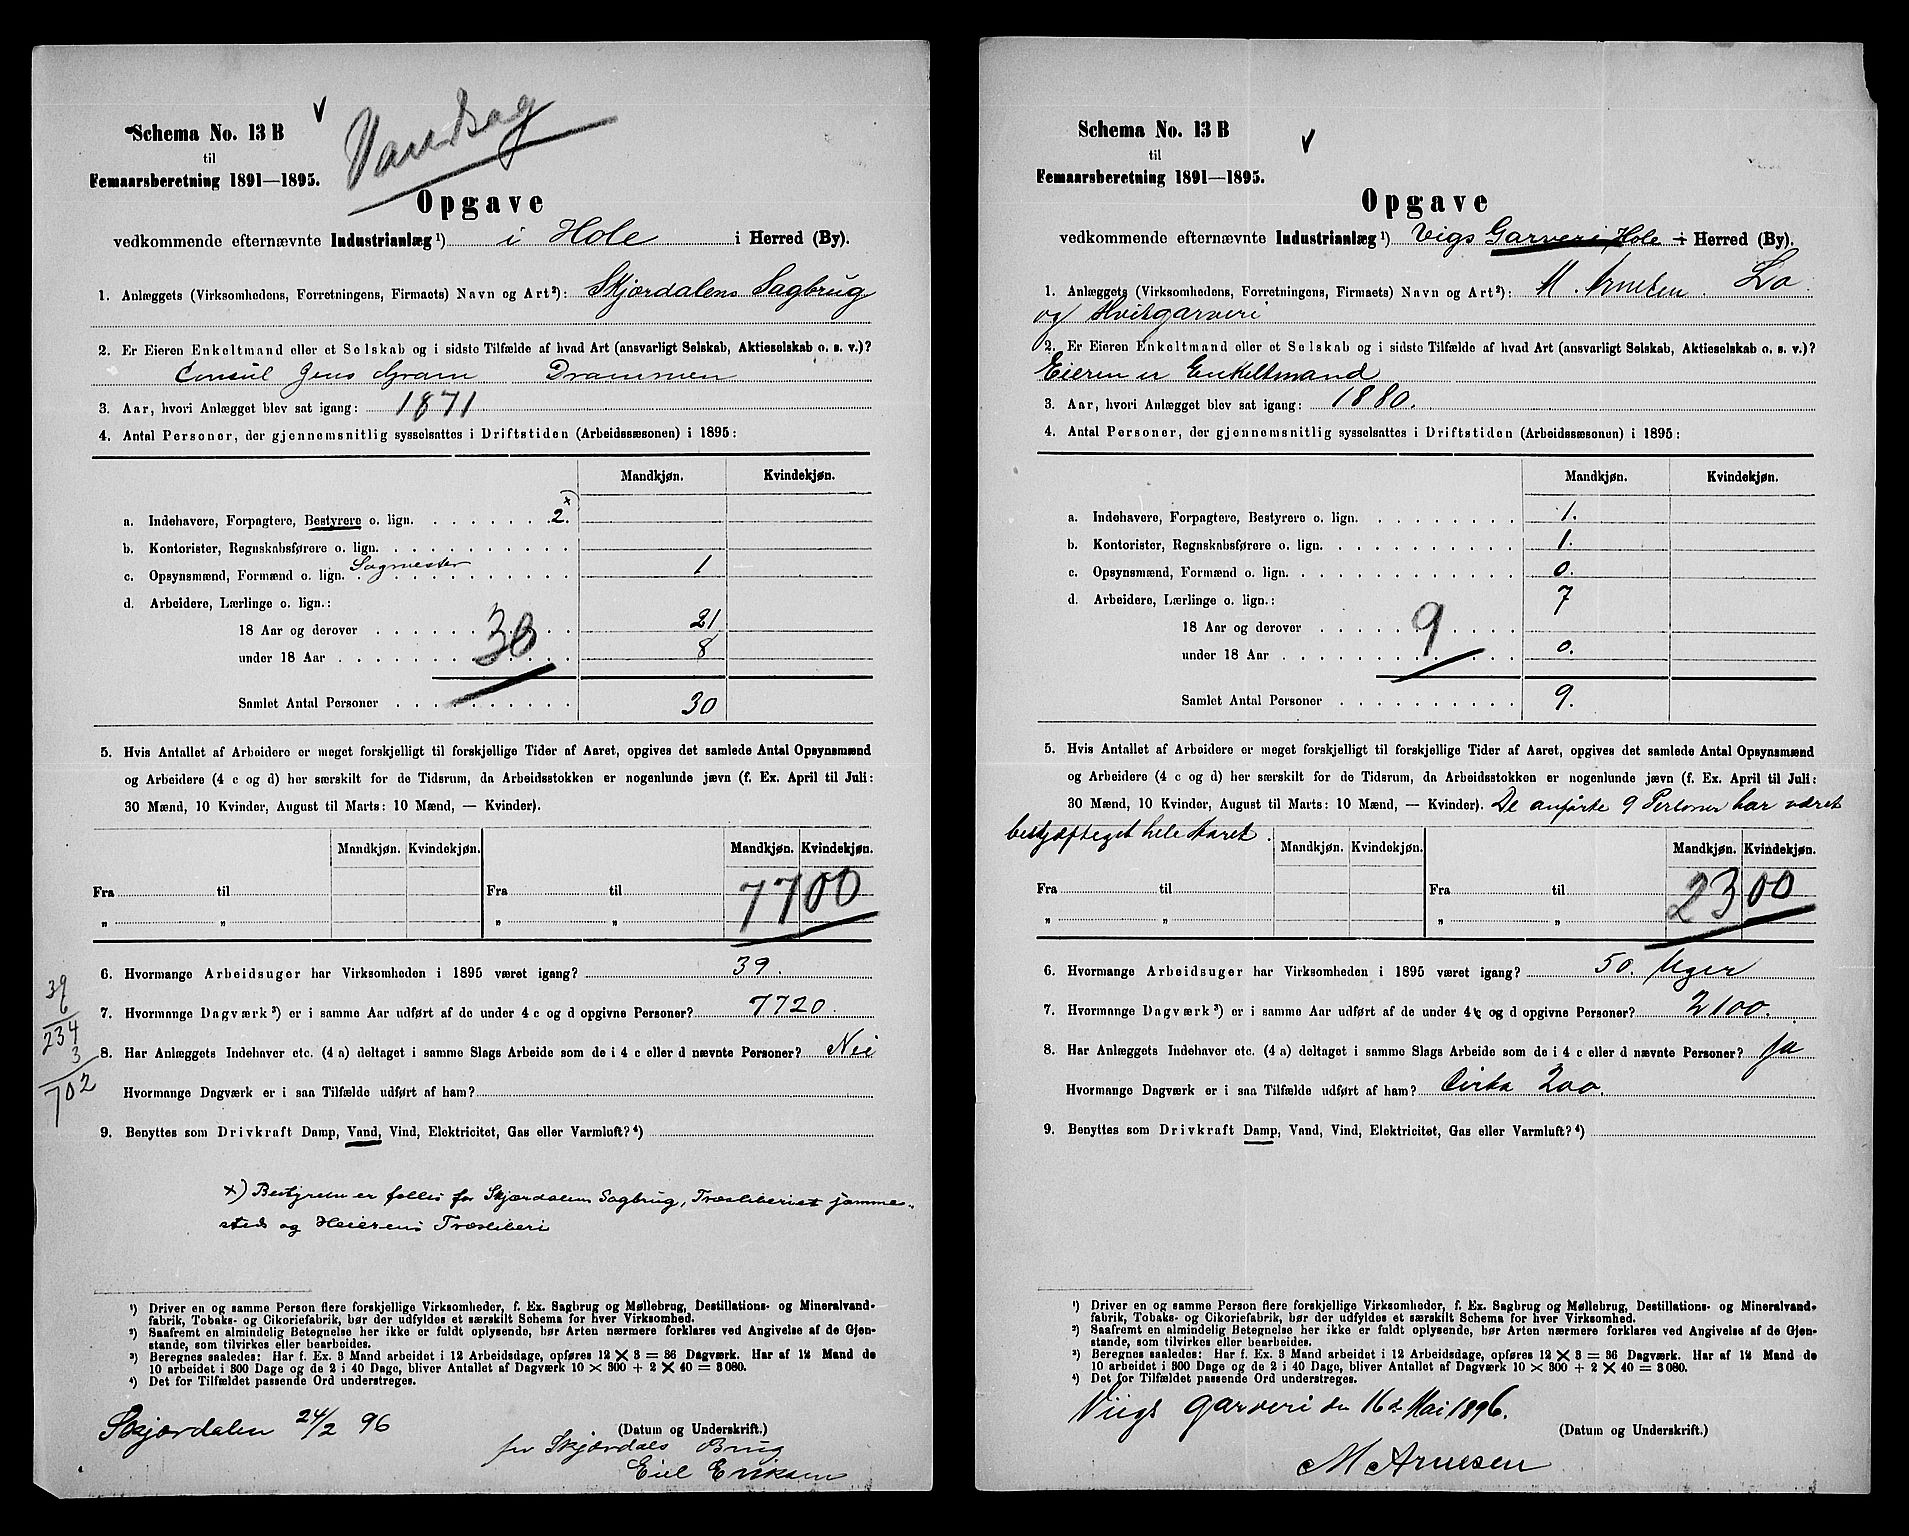 Schema No. 13 B
til
Femaarsberetning 1891—1895.
Vandsag
Opgave
vedkommende efternævnte Industrianlæg ¹) i Hole i Herred (By).
1. Anlæggets (Virksomhedens, Forretningens, Firmaets) Navn og Art²): Skjørdalens Sagbrug
2. Er Eieren Enkeltmand eller et Selskab og i sidste Tilfælde af hvad Art (ansvarligt Selskab, Aktieselskab o. s. v.)?
Consul Jens Gram Drammen
3. Aar, hvori Anlægget blev sat igang: 1871
4. Antal Personer, der gjennemsnitlig sysselsattes i Driftstiden (Arbeidssæsonen) i 1895:
Mandkjøn. Kvindekjøn.
a. Indehavere, Forpagtere, Bestyrere o. lign. 2. x
b. Kontorister, Regnskabsførere o. lign.
c. Opsynsmænd, Formænd o. lign. Sagmester 1
d. Arbeidere, Lærlinge o. lign.:
18 Aar og derover 21
under 18 Aar 8
30
Samlet Antal Personer 30
5. Hvis Antallet af Arbeidere er meget forskjelligt til forskjellige Tider af Aaret, opgives det samlede Antal Opsynsmænd
og Arbeidere (4 c og d) her særskilt for de Tidsrum, da Arbeidsstokken er nogenlunde jævn (f. Ex. April til Juli:
30 Mænd, 10 Kvinder, August til Marts: 10 Mænd, — Kvinder).
Mandkjøn. Kvindekjøn. Mandkjøn. Kvindekjøn.
Fra til Fra til
„ „ „ „
7700
6. Hvormange Arbeidsuger har Virksomheden i 1895 været igang? 39.
7. Hvormange Dagværk³) er i samme Aar udført af de under 4 c og d opgivne Personer? 7720.
8. Har Anlæggets Indehaver etc. (4 a) deltaget i samme Slags Arbeide som de i 4 c eller d nævnte Personer? Nei
Hvormange Dagværk er i saa Tilfælde udført af ham?
39
6
234
3
702
9. Benyttes som Drivkraft Damp, Vand, Vind, Elektricitet, Gas eller Varmluft?⁴)
x) Bestyrelsen er fælles for Skjørdalens Sagbrug, Træsliberiet samme-
steds og Heierens Træsliberi
¹) Driver en og samme Person flere forskjellige Virksomheder, f. Ex. Sagbrug og Møllebrug, Destillations- og Mineralvand-
fabrik, Tobaks- og Cikoriefabrik, bør der udfyldes et særskilt Schema for hver Virksomhed.
²) Saafremt en almindelig Betegnelse her ikke er fuldt oplysende, bør Arten nærmere forklares ved Angivelse af de Gjen-
stande, som tilvirkes eller bearbeides.
³) Beregnes saaledes: Har f. Ex. 3 Mand arbeidet i 12 Arbeidsdage, opføres 12 × 3 = 36 Dagværk. Har af 12 Mand de
10 arbeidet i 300 Dage og de 2 i 40 Dage, bliver Antallet af Dagværk 10 × 300 + 2 × 40 = 3 080.
⁴) Det for Tilfældet passende Ord understreges.
Skjørdalen 24/2 96
(Datum og Underskrift.)
for Skjørdals Brug
Eriksen
Schema No. 13 B
til
Femaarsberetning 1891—1895.
Opgave
vedkommende efternævnte Industrianlæg ¹) Vigs Garveri, Hole i Herred (By).
1. Anlæggets (Virksomhedens, Forretningens, Firmaets) Navn og Art²): M. Arnesen. Lo
og Hvitgarveri
2. Er Eieren Enkeltmand eller et Selskab og i sidste Tilfælde af hvad Art (ansvarligt Selskab, Aktieselskab o. s. v.)?
Eieren er Enkeltmand
3. Aar, hvori Anlægget blev sat igang: 1880.
4. Antal Personer, der gjennemsnitlig sysselsattes i Driftstiden (Arbeidssæsonen) i 1895:
Mandkjøn. Kvindekjøn.
a. Indehavere, Forpagtere, Bestyrere o. lign. 1.
b. Kontorister, Regnskabsførere o. lign. 1.
c. Opsynsmænd, Formænd o. lign. 0.
d. Arbeidere, Lærlinge o. lign.: 7
18 Aar og derover
under 18 Aar 0.
9
Samlet Antal Personer 9.
5. Hvis Antallet af Arbeidere er meget forskjelligt til forskjellige Tider af Aaret, opgives det samlede Antal Opsynsmænd
og Arbeidere (4 c og d) her særskilt for de Tidsrum, da Arbeidsstokken er nogenlunde jævn (f. Ex. April til Juli:
30 Mænd, 10 Kvinder, August til Marts: 10 Mænd, — Kvinder). De anførte 9 Personer har været
beskjæftiget hele Aaret.
Mandkjøn. Kvindekjøn. Mandkjøn. Kvindekjøn.
Fra til Fra til
„ „ „ „
2300
6. Hvormange Arbeidsuger har Virksomheden i 1895 været igang? 50. Uger
7. Hvormange Dagværk³) er i samme Aar udført af de under 4 c og d opgivne Personer? 2100.
8. Har Anlæggets Indehaver etc. (4 a) deltaget i samme Slags Arbeide som de i 4 c eller d nævnte Personer? Ja
Hvormange Dagværk er i saa Tilfælde udført af ham? Cirka 200.
9. Benyttes som Drivkraft Damp, Vand, Vind, Elektricitet, Gas eller Varmluft?⁴)
¹) Driver en og samme Person flere forskjellige Virksomheder, f. Ex. Sagbrug og Møllebrug, Destillations- og Mineralvand-
fabrik, Tobaks- og Cikoriefabrik, bør der udfyldes et særskilt Schema for hver Virksomhed.
²) Saafremt en almindelig Betegnelse her ikke er fuldt oplysende, bør Arten nærmere forklares ved Angivelse af de Gjen-
stande, som tilvirkes eller bearbeides.
³) Beregnes saaledes: Har f. Ex. 3 Mand arbeidet i 12 Arbeidsdage, opføres 12 × 3 = 36 Dagværk. Har af 12 Mand de
10 arbeidet i 300 Dage og de 2 i 40 Dage, bliver Antallet af Dagværk 10 × 300 + 2 × 40 = 3 080.
⁴) Det for Tilfældet passende Ord understreges.
Viigs Garveri den 16de Mai 1896.
(Datum og Underskrift.)
M Arnesen